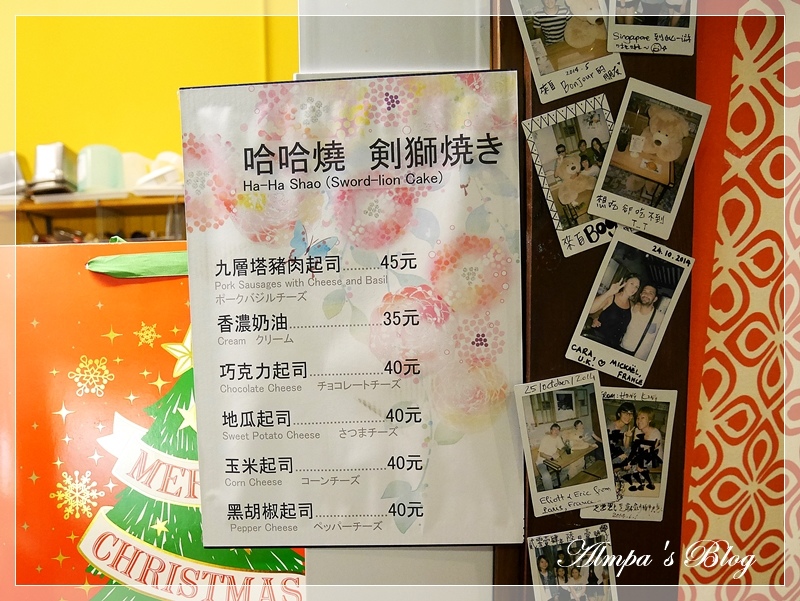 哈哈燒 剣獅焼き
Ha-Ha Shao (Sword-lion Cake)
九層塔豬肉起司......45元
Pork Sausages with Cheese and Basil
ポークバジルチーズ
香濃奶油..................35元
Cream クリーム
巧克力起司...............40元
Chocolate Cheese チョコレートチーズ
地瓜起司..................40元
Sweet Potato Cheese さつまチーズ
玉米起司..................40元
Corn Cheese コーンチーズ
黑胡椒起司..............40元
Pepper Cheese ペッパーチーズ
MER
CHRISTMAS
Singapore
2014.5
來自 Bonjour 的 朋友
想吃卻吃不到
T_T
來自 Bo
24.10.2014
CARA, U.K.
MICKAËL, FRANCE
25/October/2014
Elliott & Eric from
Paris, France
From: HONG KONG
Almpa's Blog